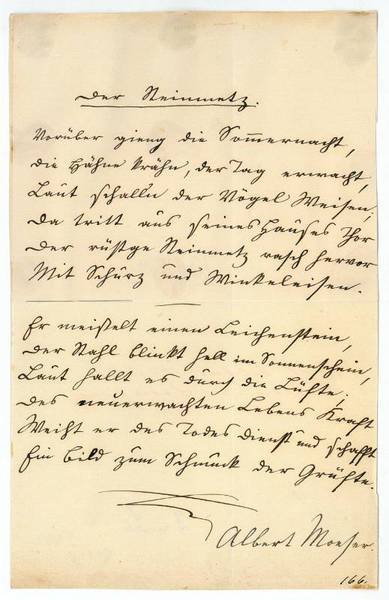 Der Steinmetz.
Vorüber gieng die Sommernacht,
die Hähne krähn, der Tag erwacht,
Laut schalln der Vögel Weisen,
Da tritt aus seines Hauses Thor
Der rüstge Steinmetz rasch hervor
Mit Schurz und Winkeleisen.
Er meißelt einen Leichenstein,
Der Stahl blinkt hell im Sonnenschein,
Laut hallt es durch die Lüfte;
Des neuerwachten Lebens Kraft
Weiht er des Todes Dienst und schafft
Ein Bild zum Schmuck der Grüfte.
Albert Moeser.
166.